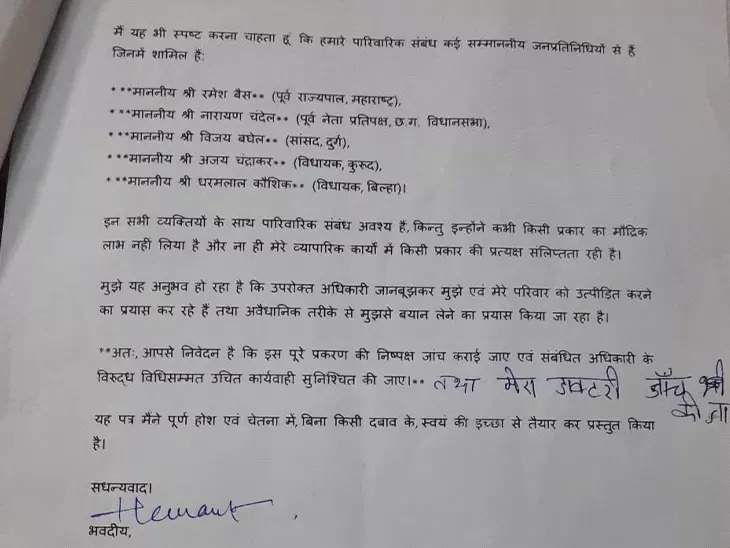 मैं यह भी स्पष्ट करना चाहता हूं कि हमारे पारिवारिक संबंध कई सम्माननीय जनप्रतिनिधियों से हैं
जिनमें शामिल हैं:
* **माननीय श्री रमेश बैस** (पूर्व राज्यपाल, महाराष्ट्र),
* **माननीय श्री नारायण चंदेल** (पूर्व नेता प्रतिपक्ष, छ.ग. विधानसभा),
* **माननीय श्री विजय बघेल** (सांसद, दुर्ग),
* **माननीय श्री अजय चंद्राकर** (विधायक, कुरुद),
* **माननीय श्री धरमलाल कौशिक** (विधायक, बिल्हा)।
इन सभी व्यक्तियों के साथ पारिवारिक संबंध अवश्य हैं, किन्तु इन्होंने कभी किसी प्रकार का मौद्रिक
लाभ नहीं लिया है और ना ही मेरे व्यापारिक कार्यों में किसी प्रकार की प्रत्यक्ष संलिप्तता रही है।
मुझे यह अनुभव हो रहा है कि उपरोक्त अधिकारी जानबूझकर मुझे एवं मेरे परिवार को उत्पीड़ित करने
का प्रयास कर रहे हैं तथा अवैधानिक तरीके से मुझसे बयान लेने का प्रयास किया जा रहा है।
**अतः, आपसे निवेदन है कि इस पूरे प्रकरण की निष्पक्ष जांच कराई जाए एवं संबंधित अधिकारी के
विरुद्ध विधिसम्मत उचित कार्यवाही सुनिश्चित की जाए।** तथा मेरा डाक्टरी जाँच भी
की जा
यह पत्र मैंने पूर्ण होश एवं चेतना में, बिना किसी दबाव के, स्वयं की इच्छा से तैयार कर प्रस्तुत किया
है।
सधन्यवाद।
Hemant
भवदीय,